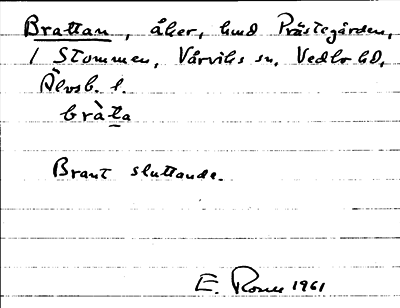 Brattan, åker, hmd Prästegården,
/ Stommen, Vårviks sn, Vedbo hd,
Älvsb. l.
bràta
Brant sluttande.
E. Rosen 1961